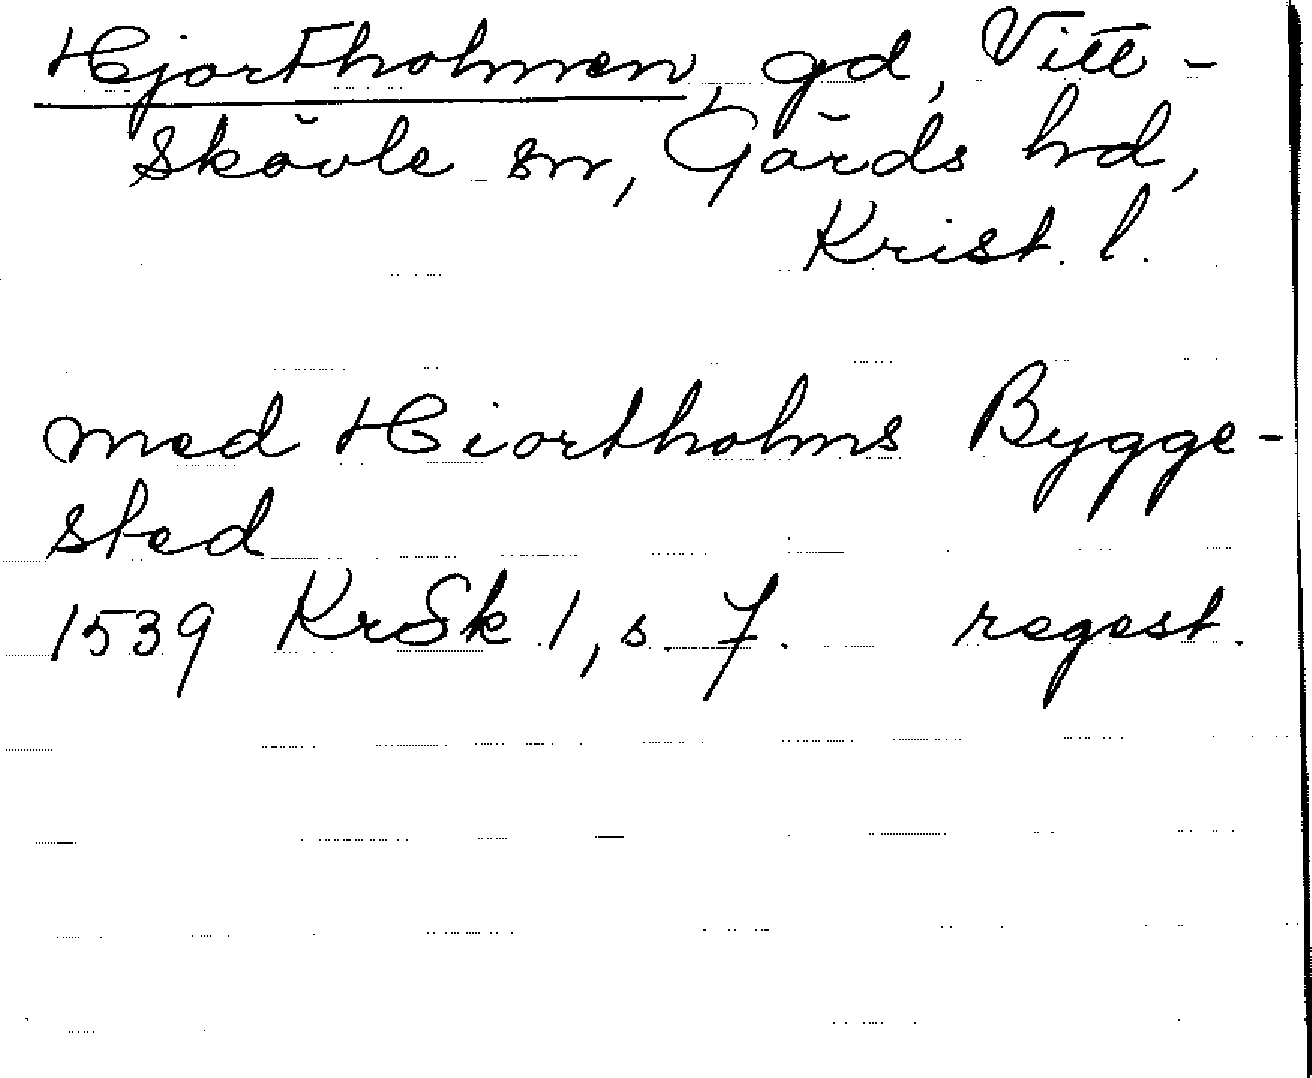 Hjortholmen, gd, Vitt-
skövle sn, Gärds hd,
Krist. l.
med Hiortholms Bygge-
sted
1539 KrSk 1, s. 7. regest.